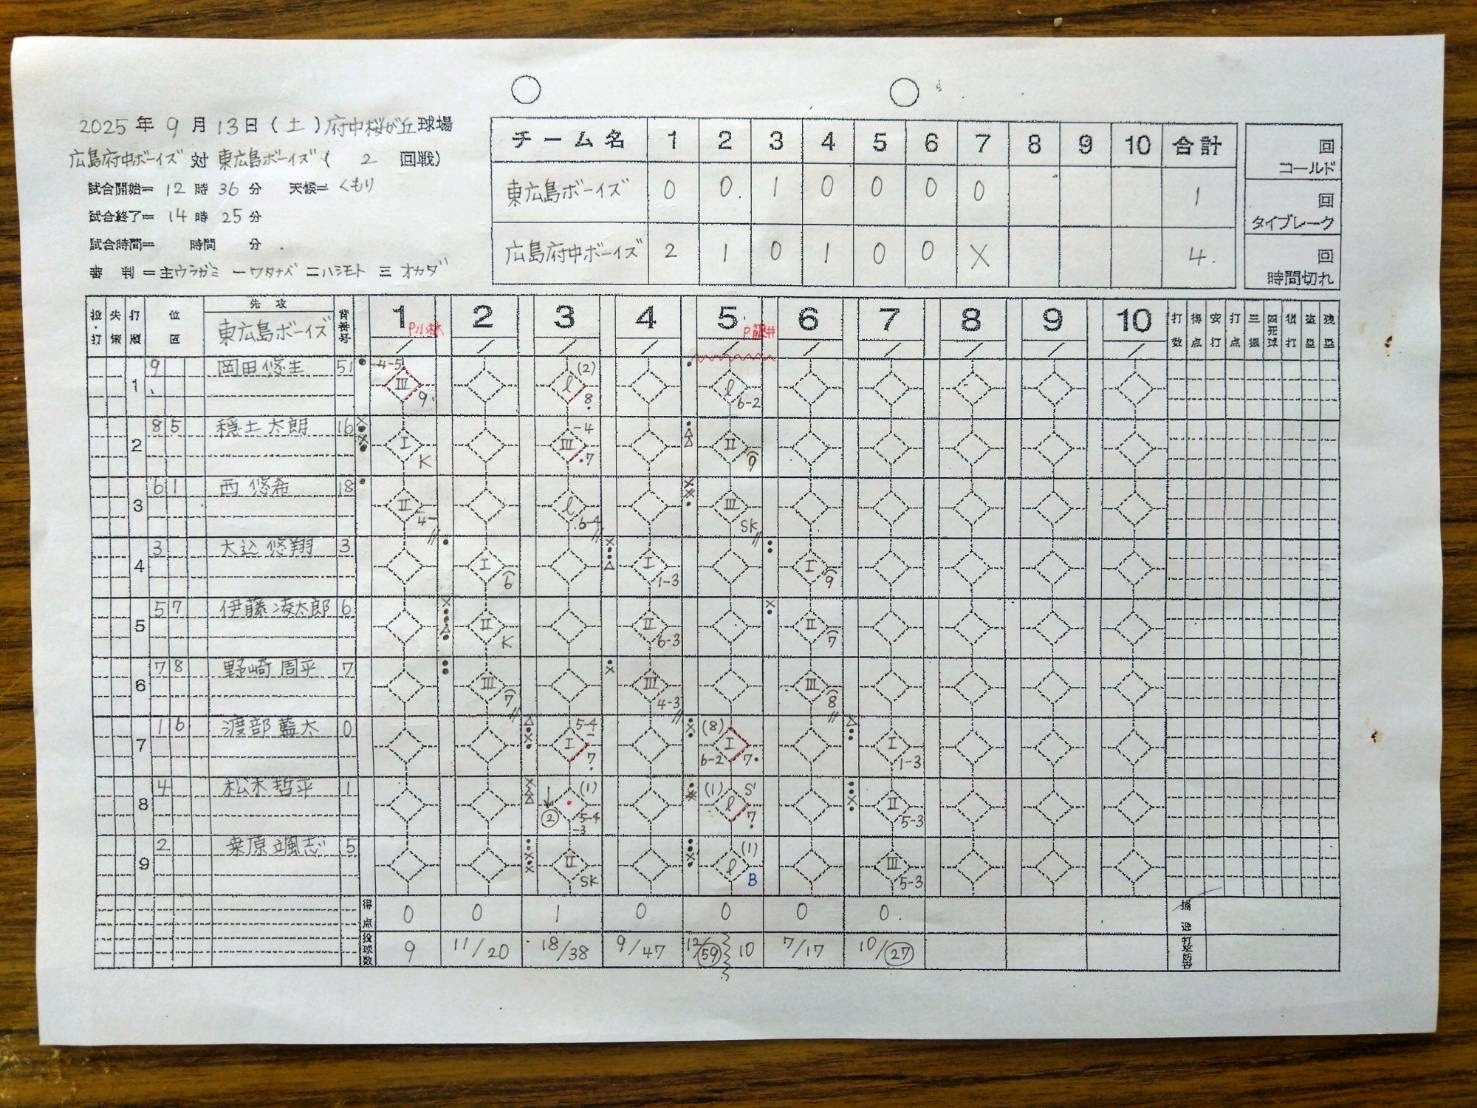 2025年 9月 13日(土)府中桜が丘球場
広島府中ボーイズ 対 東広島ボーイズ( 2 回戦)
試合開始= 12時 36分 天候= くもり
試合終了= 14時 25分
試合時間= 時間 分
審 判 =主ウラガミ 一ワタナベ 二ハシモト 三 オカダ
チーム名 1 2 3 4 5 6 7 8 9 10 合計
東広島ボーイズ 0 0 1 0 0 0 0 1
広島府中ボーイズ 2 1 0 1 0 0 X 4
回
コールド
回
タイブレーク
回
時間切れ
投・打 失策 打順 位 区 先攻 背番号 1 2 3 4 5 6 7 8 9 10 打数 得点 安打 打点 三振 四死球 犠打 盗塁 残塁
東広島ボーイズ
1 9 岡田悠生 51 4-5 III 9 (2) l 8 l 6-2
2 8 5 穏土太朗 16 I K -4 III 7 II 9
3 6 1 西 悠希 18 II 4- l 6-4 III SK
4 3 大込悠翔 3 I 6 I 1-3 I 9
5 5 7 伊藤凌太郎 6 II K II 6-3 II 7
6 7 8 野崎周平 7 III 7 III 4-3 III 8
7 1 6 渡部藍大 0 5-4 I 7 (8) I 6-2 7 I 1-3
8 4 松木哲平 1 (1) ② 5-4 -3 (1) S' l 7 II 5-3
9 2 桒原颯志 5 II SK (1) l B III 5-3
得点 0 0 1 0 0 0 0
投球数 9 11/20 18/38 9/47 12/59 10 7/17 10/27